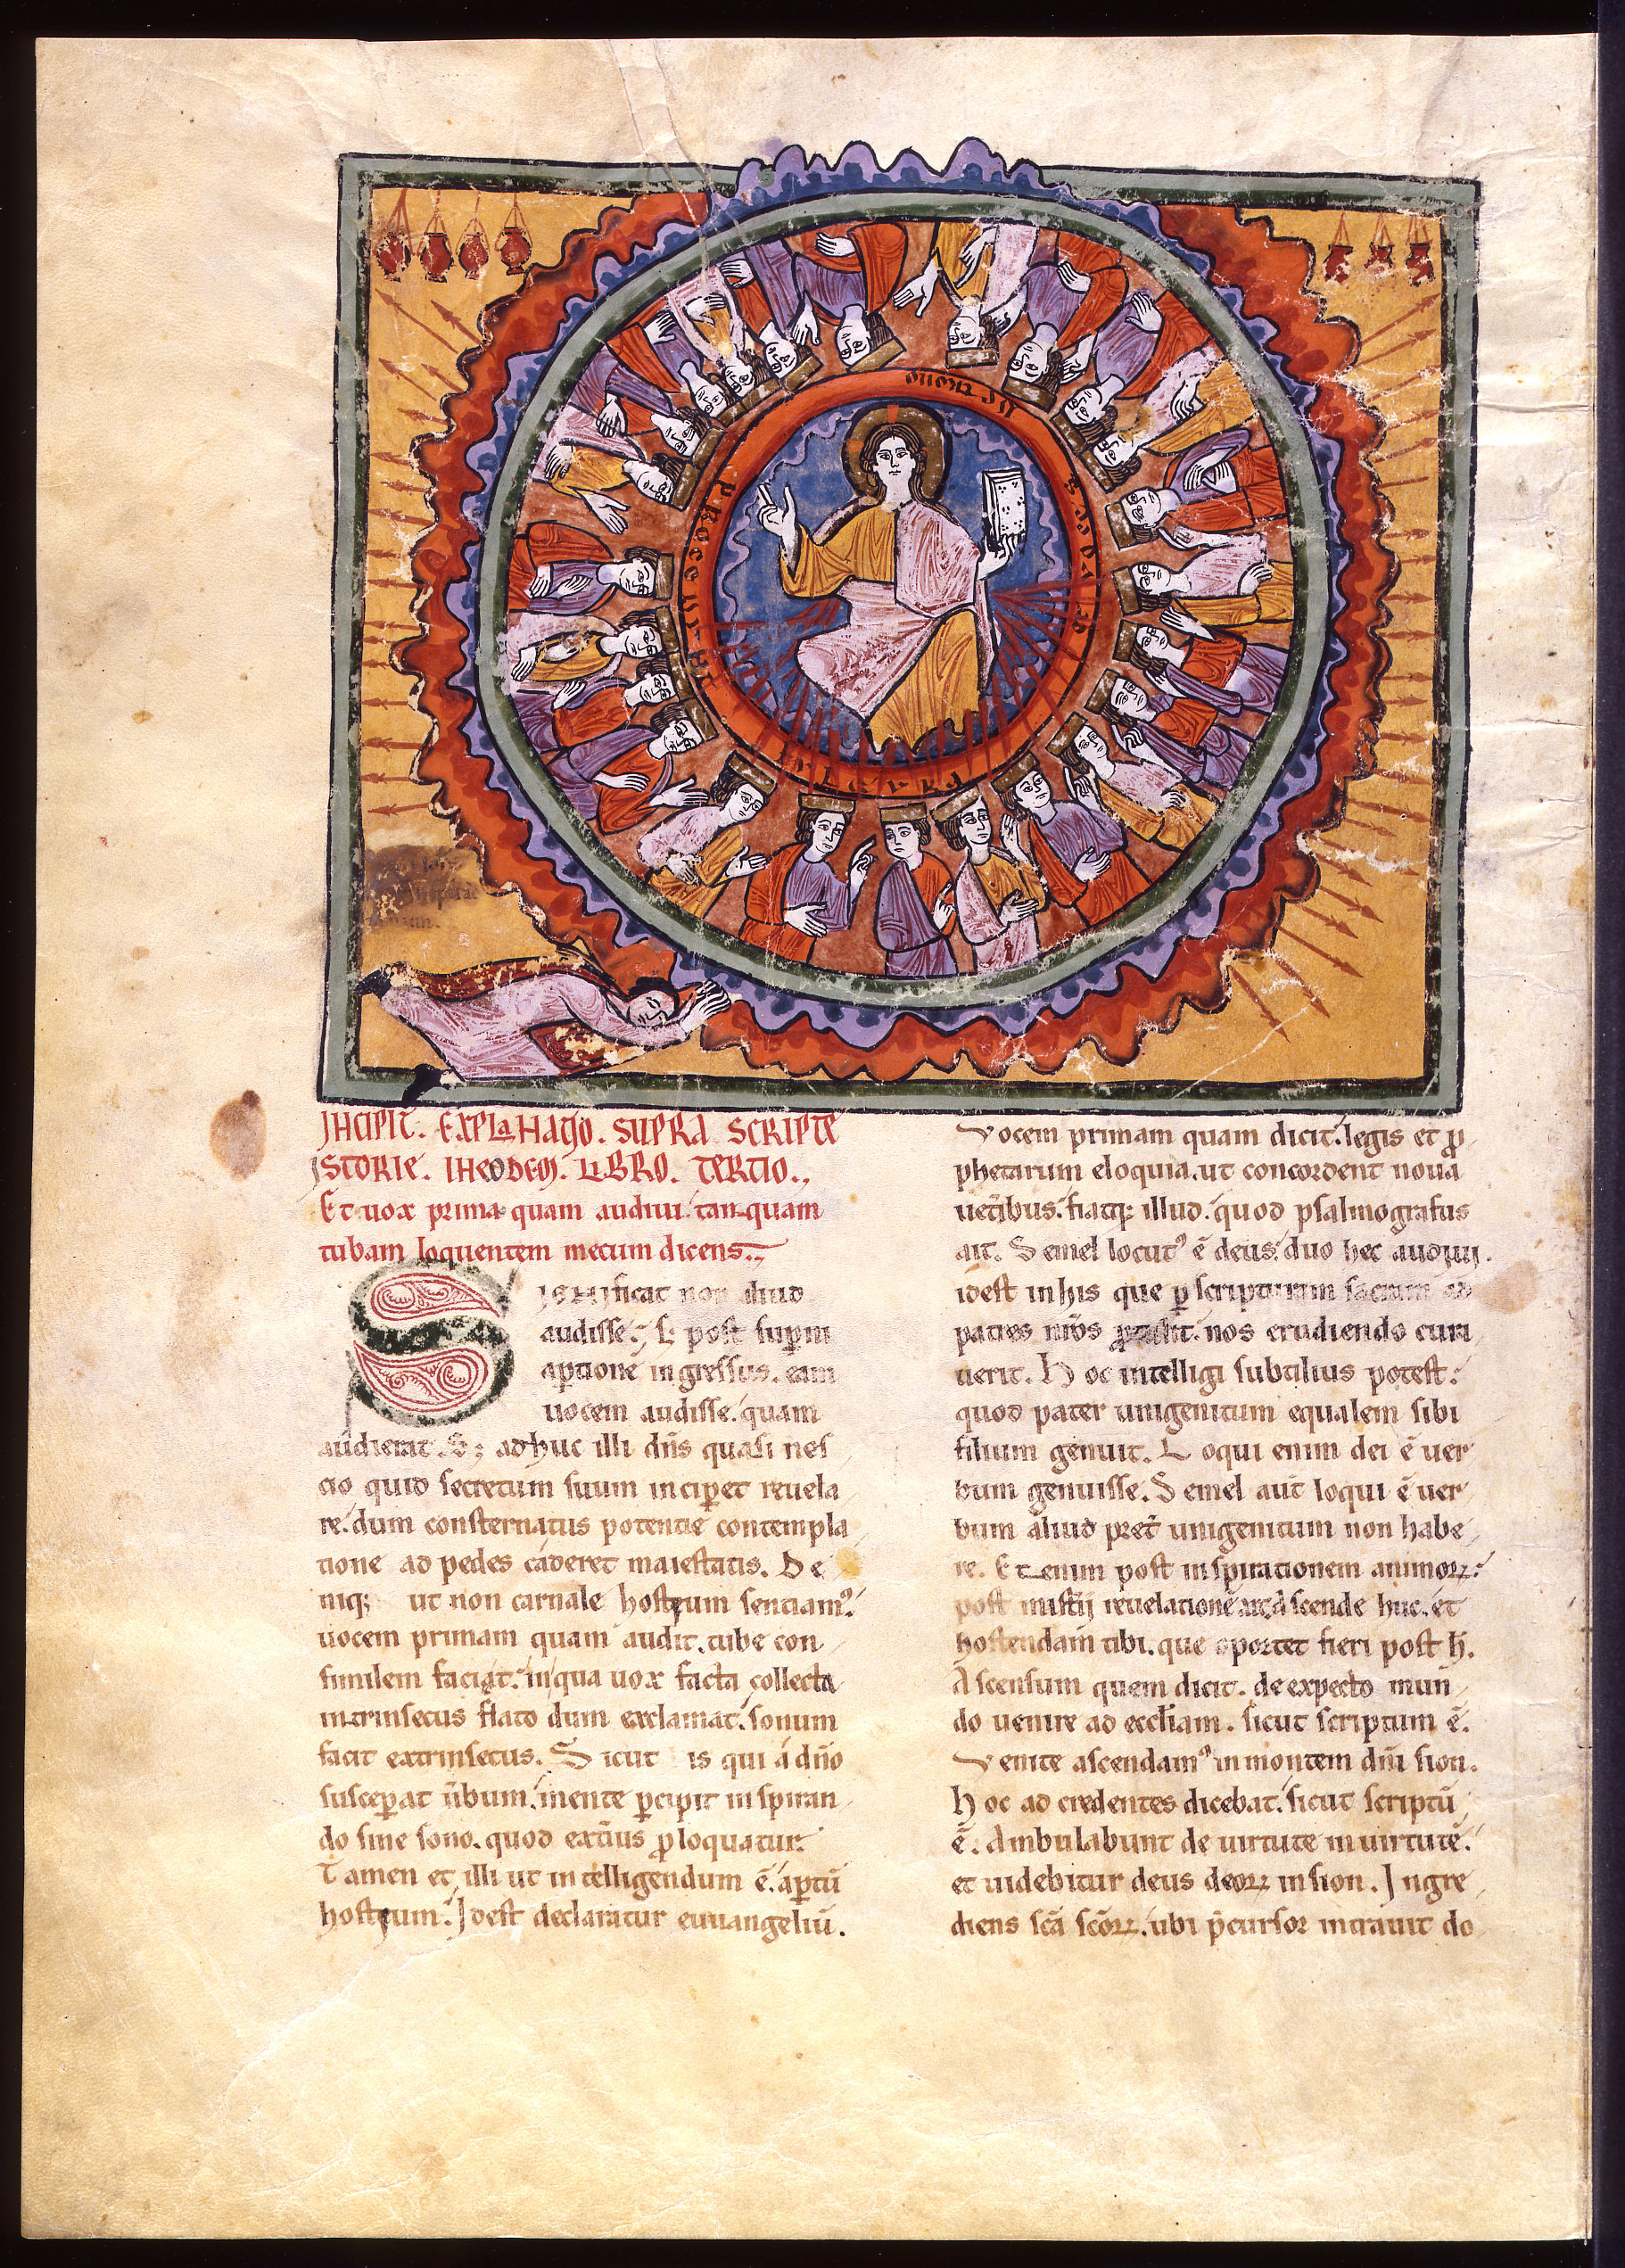 INCIPIT. EXPLaNATJO. SUPRA SCRIPTE
JSTORIE. INEODEM. LIBRO. TERTIO.,
Et uox prima quam audiui tanquam
tubam loquentem mecum dicens.,
SIGNIficat non aliud
audisse.; S post sup̄m
ap̄tionē ingressus. eam
uocem audisse. quam
audierat. S; adhuc illi dn̄s quasi nes
cio quid secretum suum incip̄et reuela
re. dum consternatus potentie contempla
tione ad pedes caderet maiestatis. De
niq; ut non carnale hostium sentiamꝰ.
uocem primam quam audit. tube con
similem faciat. inqua uox facta collecta
intrinsecus flato dum exclamat. sonum
facit extrinsecus. Sicut is qui a dn̄o
suscep̄at ūbum. mente p̄cipit inspiran
do sine sono. quod exti̅us ꝓloquatur.
Tamen et illi ut intelligendum ē. ap̄tū
hostium. Jdest declaratur euuangeliū.
Vocem primam quam dicit. legis et ꝓ
phetarum eloquia. ut concordent noua
uet̄ibus. fiatq; illud. quod psalmografus
ait. Semel locutꝰ ē deus. duo hec audiui.
idest inhis que ꝑ scripturam sacram ad
patres nr̄os nos erudiendo curi
uerit. Hoc intelligi subtilius potest.
quod pater unigenitum equalem sibi
filium genuit. Loqui enim dei ē uer
bum genuisse. Semel aut̄ loqui ē uer
bum aliud pret̄ unigenitum non habe
re. Etenim post inspirationem animoꝝ.
post mist̄ij reuelationē ascende huc. et
hostendam tibi. que oportet fieri post h̄.
Ascensum quem dicit. de expecto mun
do uenire ad eccl̄iam. sicut scriptum ē.
Venite ascendamꝰ in montem dn̄i sion.
Hoc ad credentes dicebat. sicut scriptū
ē. Ambulabunt de uirtute in uirtutē.
et uidebitur deus deoꝝ in sion. Jngre
diens sc̄a sc̄oꝝ. ubi p̄cursor intrauit do